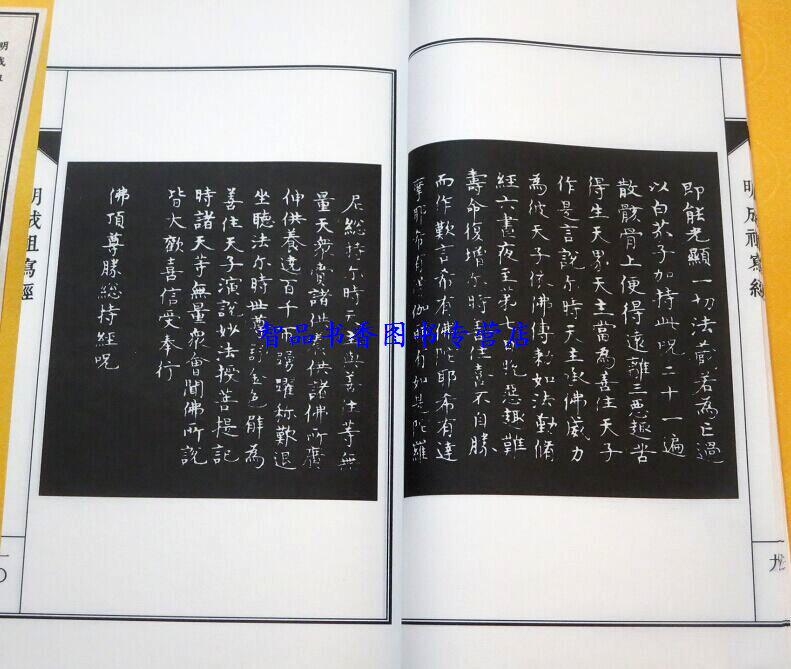 明成祖寫經
即能光顯一切法藏若為亡過
以白芥子加持此呪二十一遍
散骸骨上便得遠離三惡趣苦
得生天界天主當為善住天子
作是言說尒時天主承佛威力
為彼天子依佛傳勑如法勤脩
經六晝夜至第七日脫惡趣難
壽命復增尒時善住喜不自勝
而作歎言希有佛陀耶希有達
摩耶希有僧伽耶有如是陀羅
尼總持尒時天主與善住等無
量天衆賫諸供養供諸佛所廣
伸供養遶百千帀踴躍称歎退
坐聽法尒時世尊記金色臂為
善住天子演說妙法授菩提記
時諸天等無量衆會聞佛所說
皆大歡喜信受奉行
佛頂尊勝總持經呪
明成祖寫經
九
一〇
智品书香图书专营店